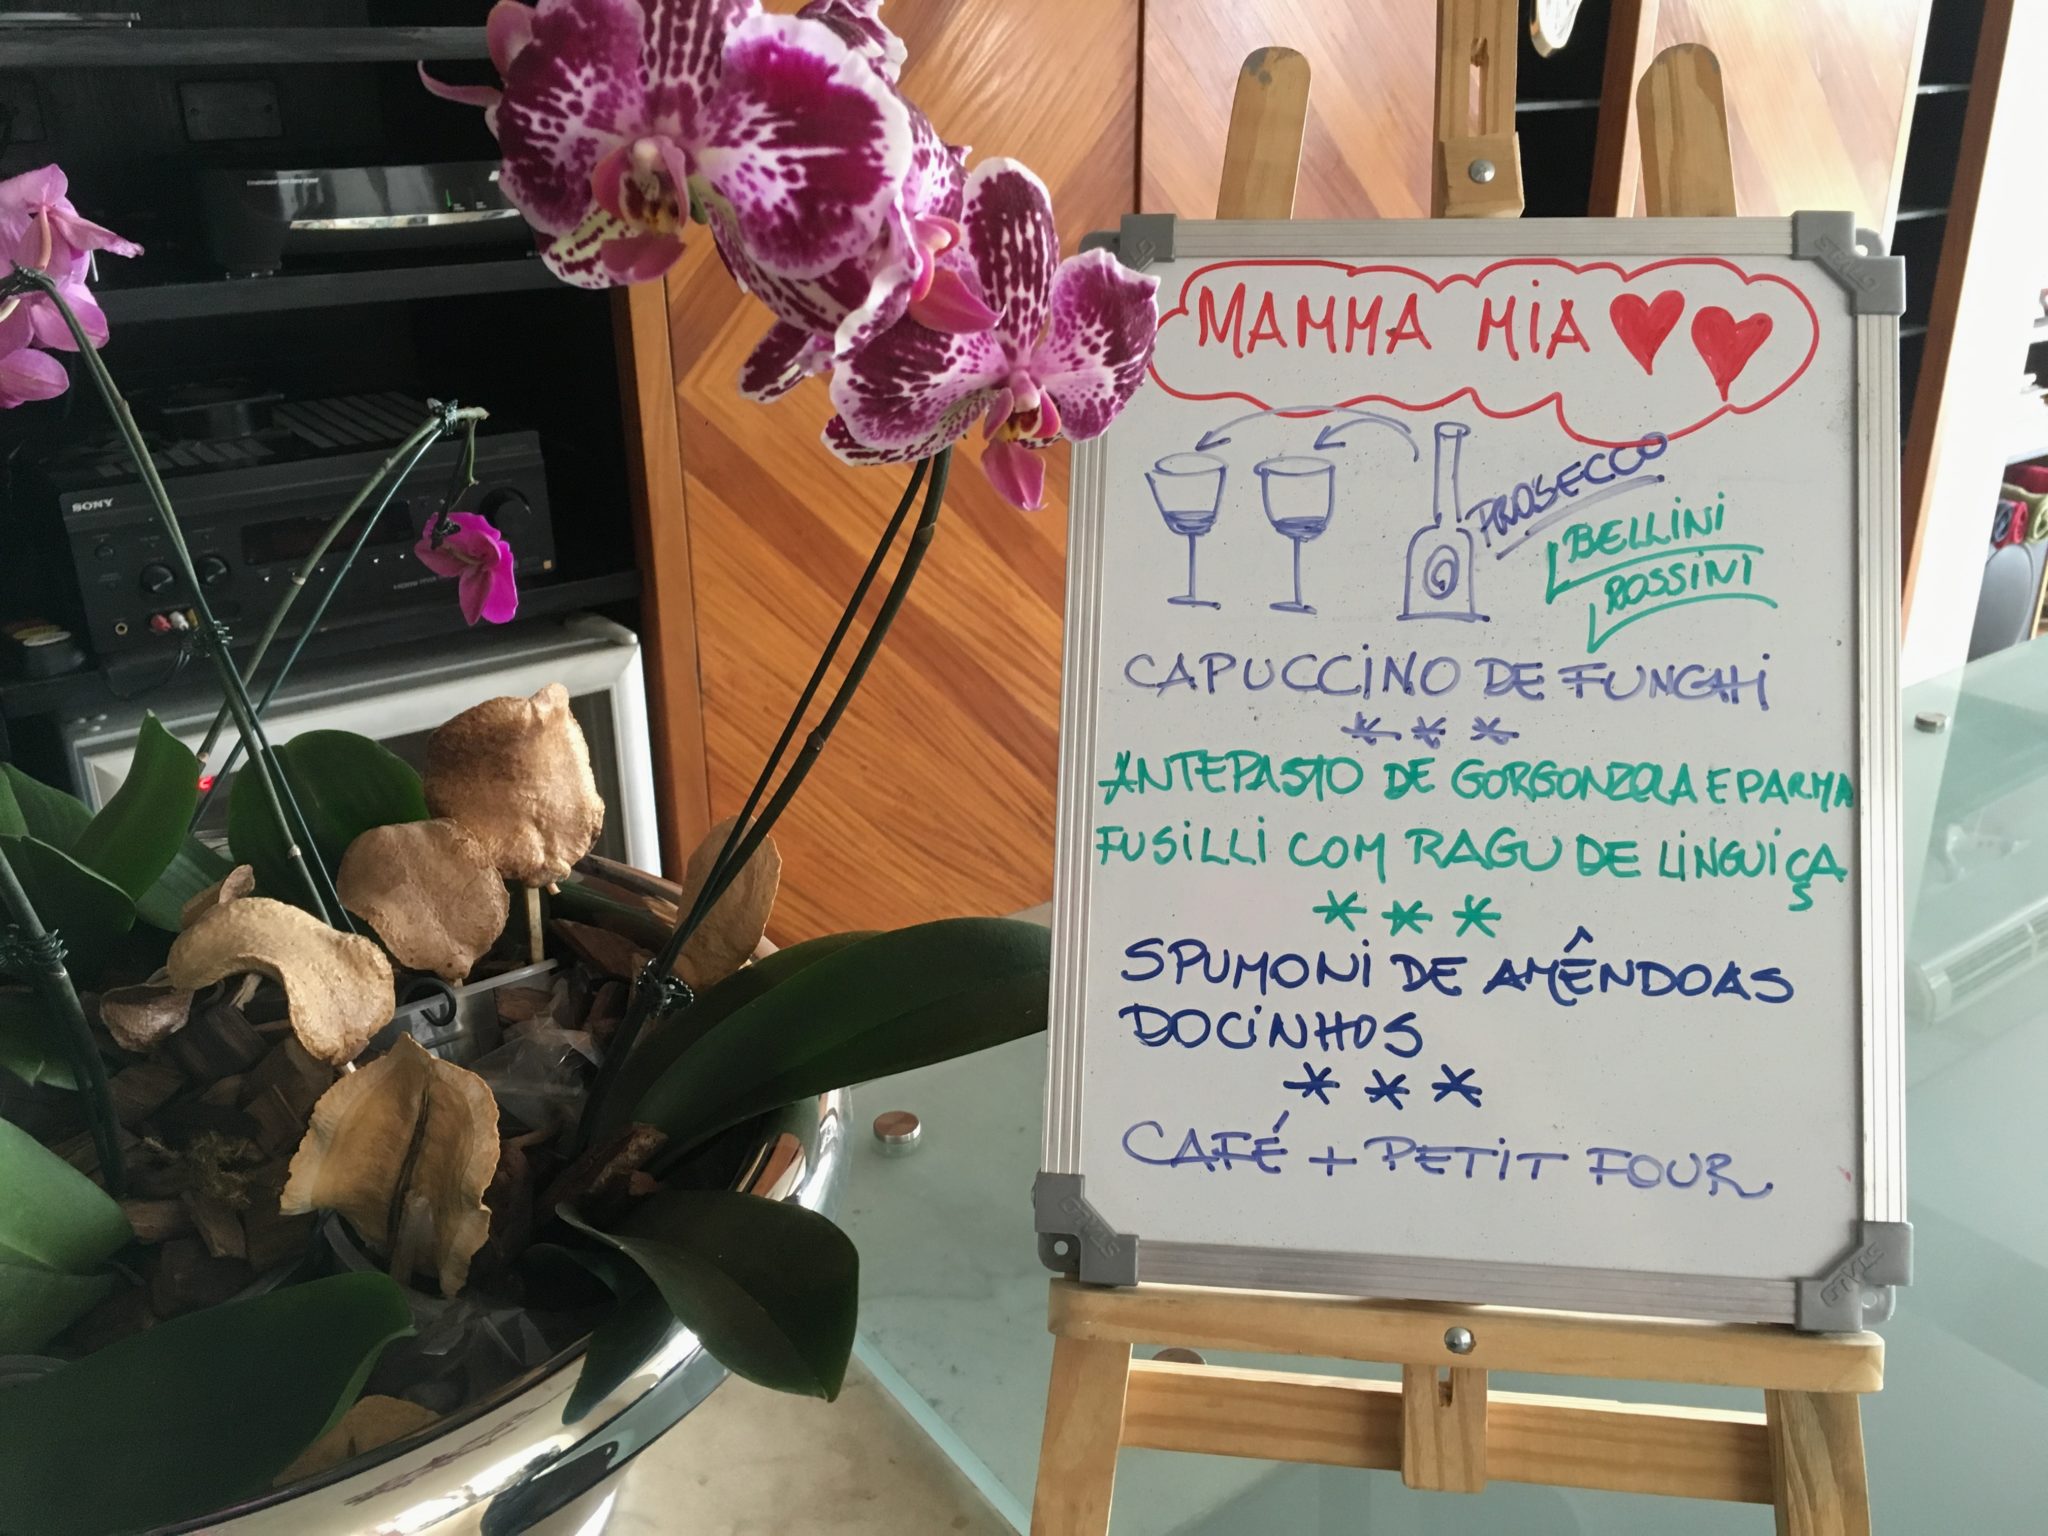 SONY
MAMMA MIA
PROSECCO
BELLINI
ROSSINI
CAPUCCINO DE FUNGHI
* * *
ANTEPASTO DE GORGONZOLA E PARMA
FUSILLI COM RAGU DE LINGUIÇA
* * *
SPUMONI DE AMÊNDOAS
DOCINHOS
* * *
CAFÉ + PETIT FOUR
STALO
STALO
STALO